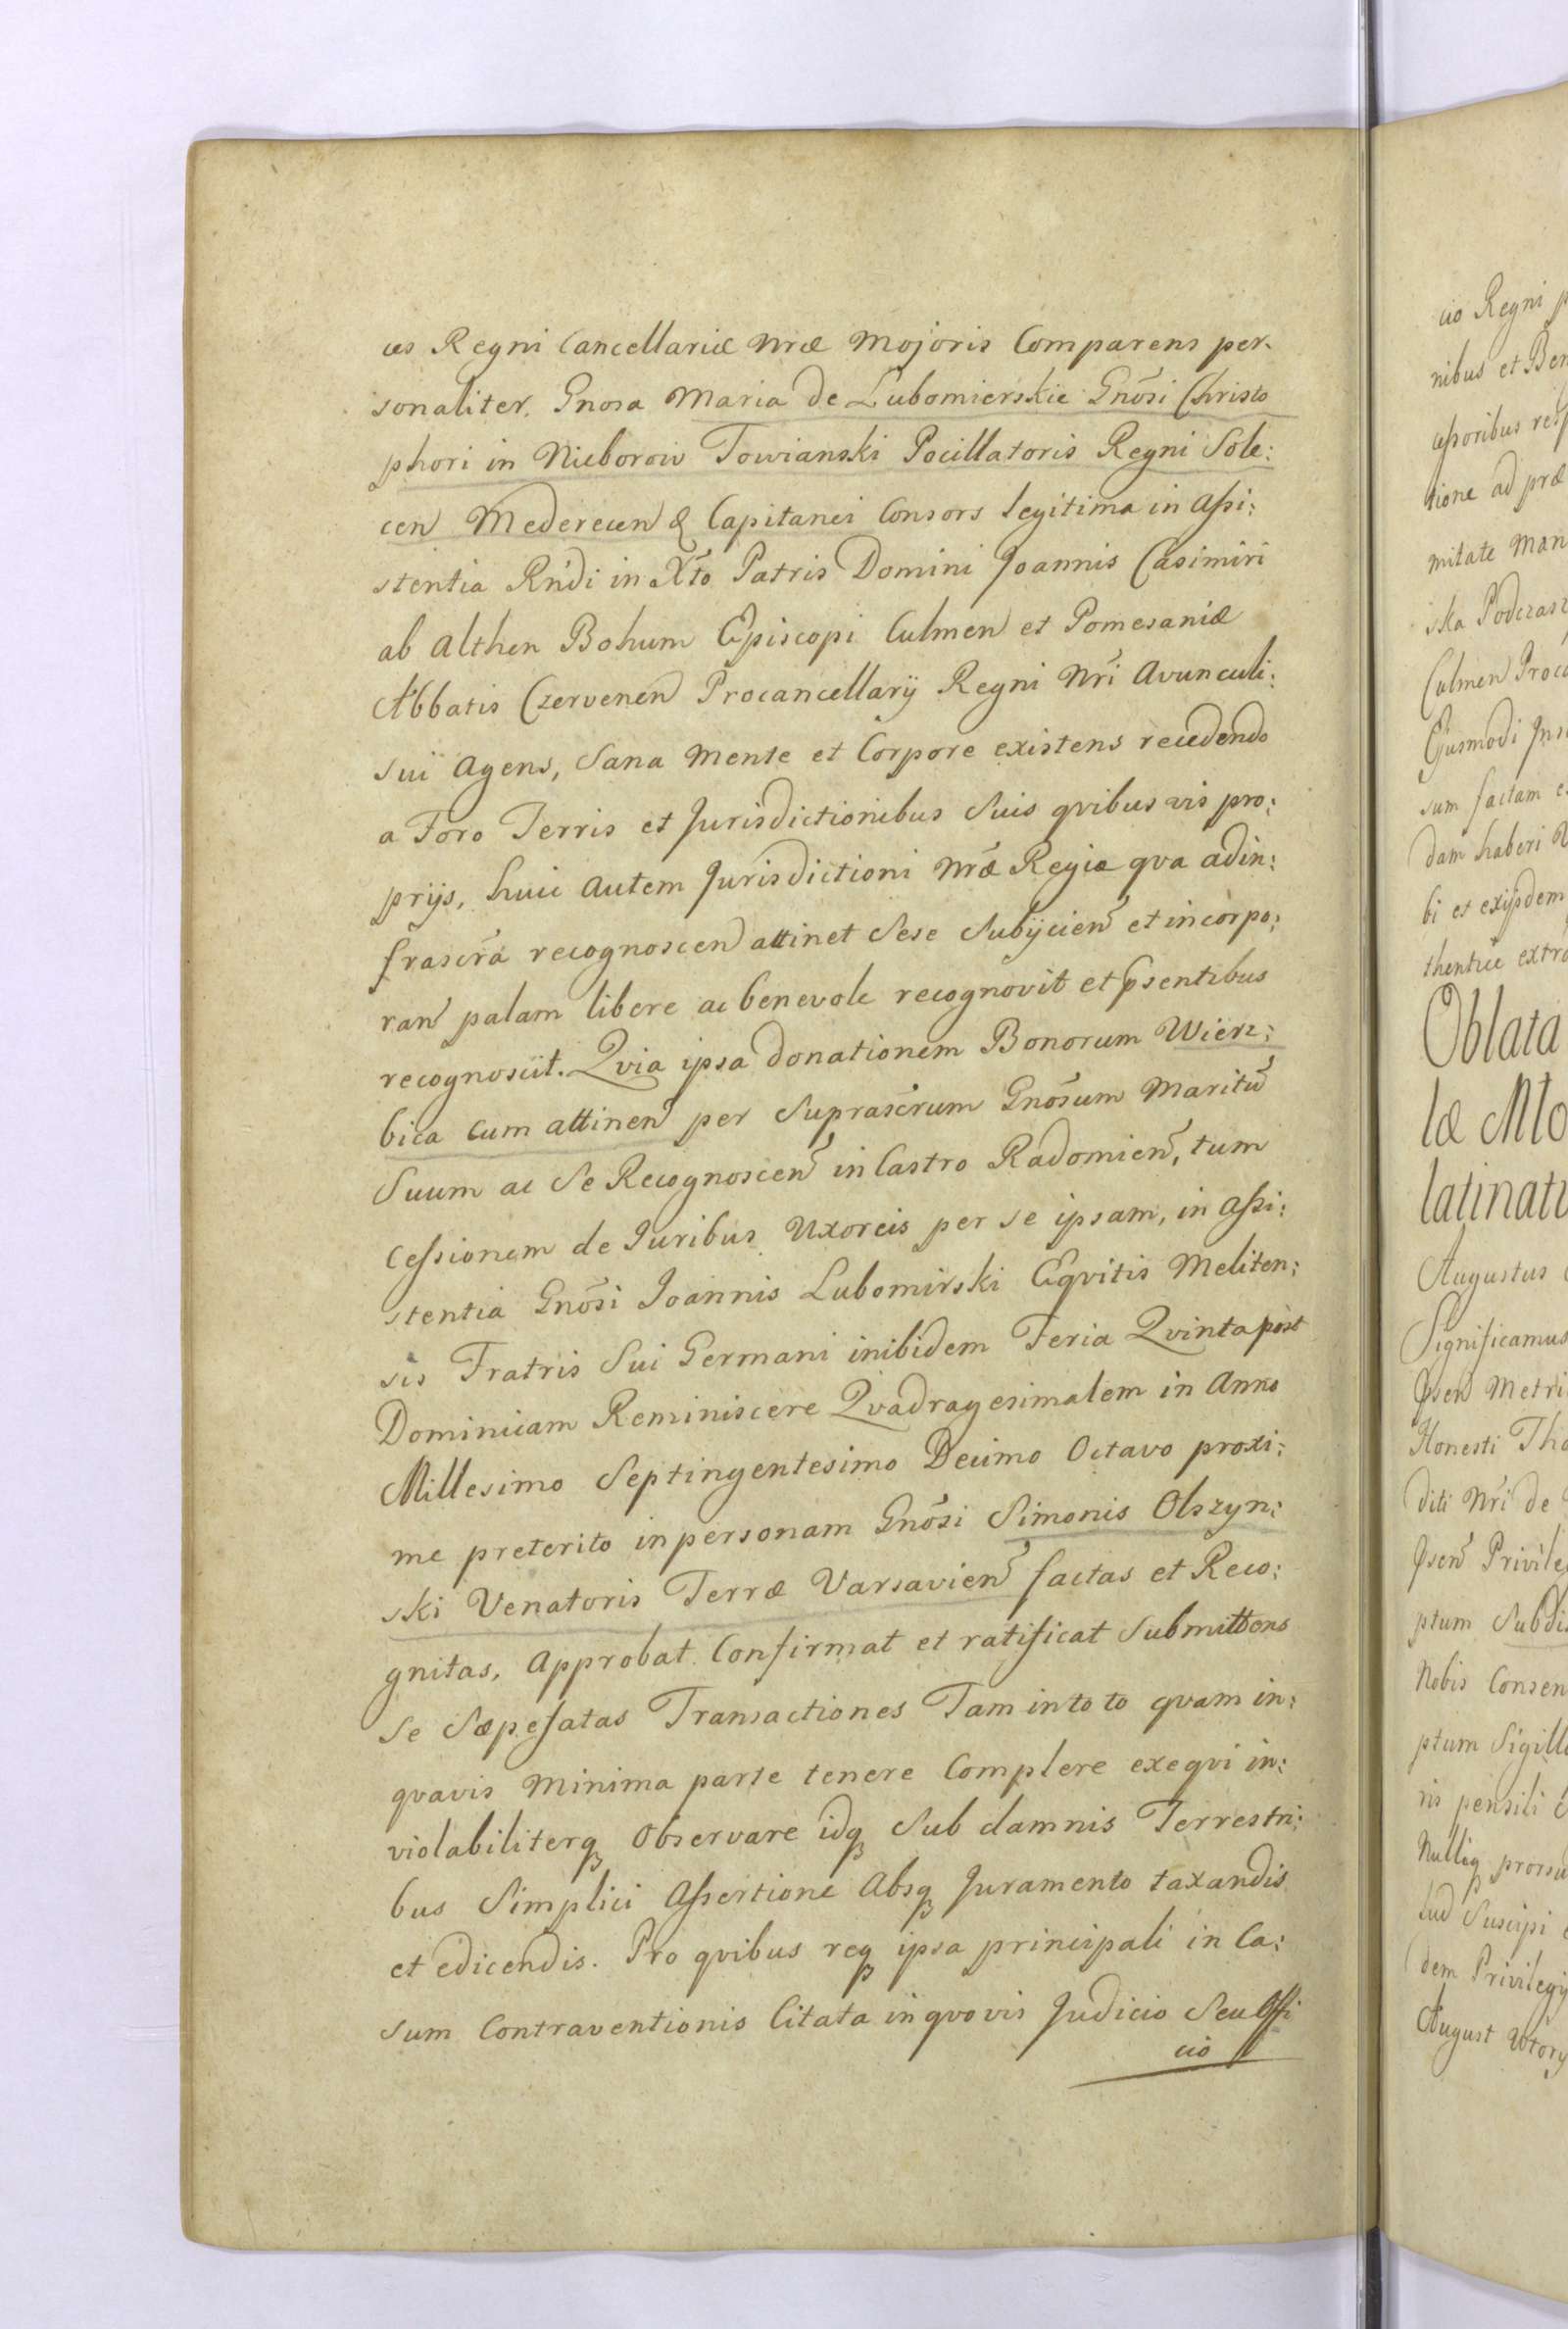 ces Regni Cancellariæ nræ Majoris Comparens per-
sonaliter. Gnosa Maria de Lubomierskie Gnõsi Christo
phori in Nieborow Towianski Pocillatoris Regni Sole:
cen Mederecen & Capitanei Consors legitima in assi:
stentia Rndi in Xto Patris Domini Joannis Casimiri
ab Althen Bohum Episcopi Culmen et Pomesaniæ
Abbatis Czervenen Procancellarÿ Regni Nri Avunculi:
sui Agens, Sana Mente et Corpore existens recedendo
a Foro Terris et Jurisdictionibus Suis qvibusvis pro:
prijs, huic Autem Jurisdictioni Nræ Regiæ qva adin:
frascra recognoscen attinet Sese Subÿcien et incorpo:
ran palam libere ac benevole recognovit et pseentibus
recognoscit. Qvia ipsa donationem Bonorum Wierz:
bica cum attinen per Suprascrum Gnõsum Maritũ
Suum ac Se Recognoscen in Castro Radomien, tum
cessionem de Juribus Uxoreis per se ipsam, in assi:
stentia Gnõsi Joannis Lubomirski Eqvitis Meliten:
sis Fratris Sui Germani inibidem Feria Qvinta post
Dominicam Reminiscere Qvadragesimalem in Anno
Millesimo Septingentesimo Decimo Octavo proxi:
me preterito in personam Gnõsi Simonis Olszyn:
ski Venatoris Terræ Varsavien factas et Reco:
gnitas, Approbat Confirmat et ratificat Submittens
Se Sæpefatas Transactiones Tam in toto qvam in:
qvavis Minima parte tenere Complere exeqvi in:
violabiliterq Observare idq Sub damnis Terrestri:
bus Simplici Assertione Absq Juramento taxandis
et edicendis. Pro qvibus req ipsa principali in Ca:
sum Contraventionis Citata in qvovis Judicio Seu Offi
cio
cio Regni
nibus et
cessoribus
tione ad præ
mitate
ska
Culmen
Ejusmodi
sum factam
dam haberi
bi et exijsdem
thentice
Oblata
læ
Augustus
Significamus
Metri
Honesti
diti Nri de
ptum
Nobis Consen
ptum Sigill
ris pensili
Nulliq
Suscipi
dem Privilegÿ
August Wtory